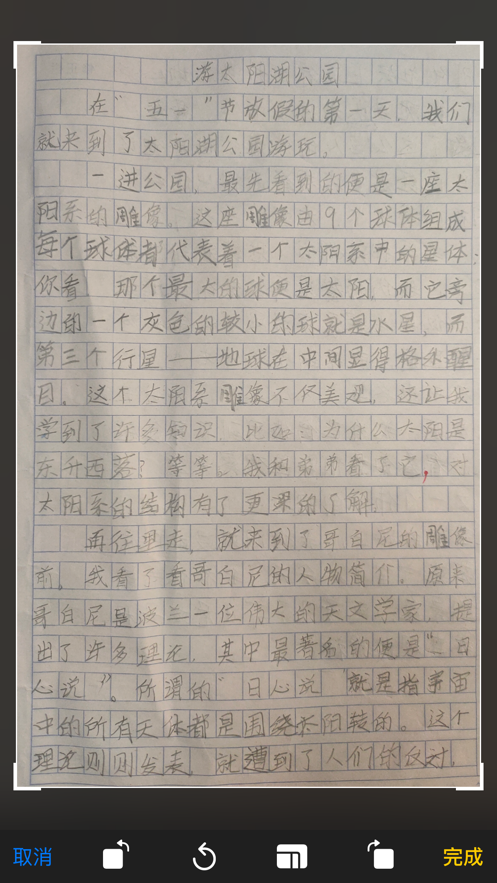 游太阳湖公园
在"五一"节放假的第一天，我们
就来到了太阳湖公园游玩。
一进公园，最先看到的便是一座太
阳系的雕像，这座雕像由9个球体组成
每个球体都代表着一个太阳系中的星体.
你看，那个最大的球便是太阳，而它旁
边的一个灰色的较小的球就是水星，而
第三个行星——地球在中间显得格外醒
目。这个太阳系雕像不仅美观，还让我
学到了许多知识，比如：为什么太阳是
东升西落？等等。我和弟弟看了它，对
太阳系的结构有了更深的了解.
再往里走，就来到了哥白尼的雕像
前。我看了看哥白尼的人物简介。原来
哥白尼是波兰一位伟大的天文学家，提
出了许多理论，其中最著名的便是"日
心说"。所谓的"日心说"就是指宇宙
中的所有天体都是围绕太阳转的。这个
理论刚刚发表，就遭到了人们的反对，
取消
完成